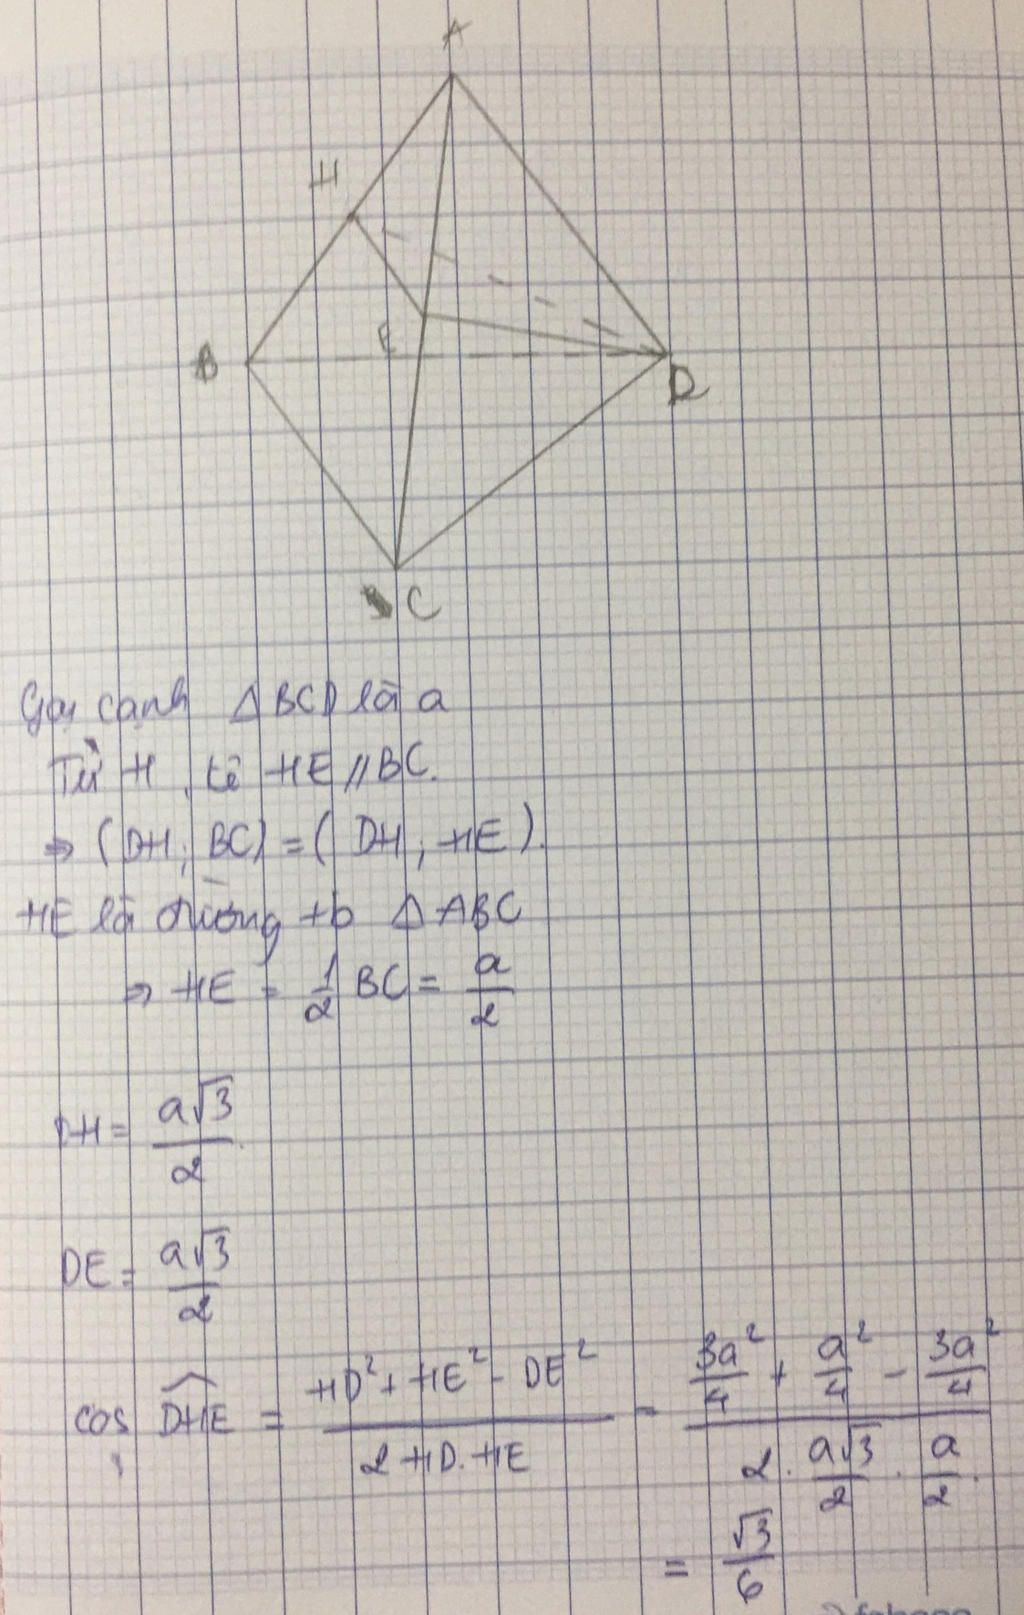 A
H
E
B
D
C
Gọi cạnh Δ BCD là a
Từ H, kẻ HE // BC.
⇒ (DH, BC) = (DH, HE).
HE là đường tb Δ ABC
⇒ HE = 1/2 BC = a/2
DH = a√3/2
DE = a√3/2
cos DHE = (HD² + HE² - DE²)/(2 HD. HE) = (3a²/4 + a²/4 - 3a²/4)/(2 . a√3/2 . a/2)
= √3/6